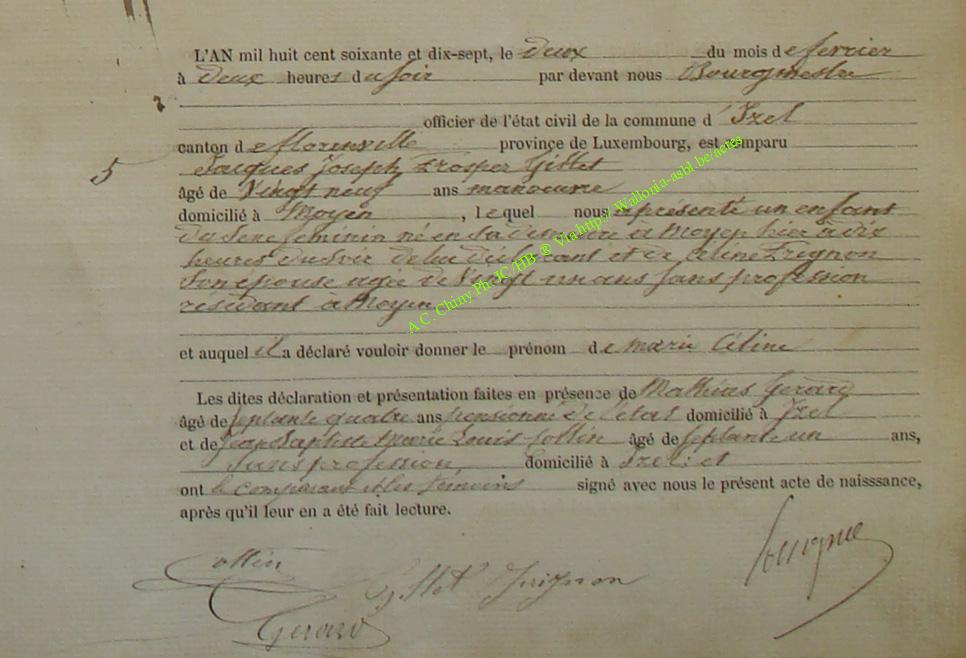 L'AN mil huit cent soixante et dix-sept, le deux du mois de fevrier
à deux heures du soir par devant nous Bourgmestre
officier de l'état civil de la commune d'Izel
canton de florenville province de Luxembourg, est comparu
5
Jacques Joseph Prosper Gillet
âgé de Vingt neuf ans manoeuvre
domicilié à Moyen, lequel nous a présenté un enfant
du sexe feminin né en sa demeure a Moyen hier à dix
heures du soir de lui déclarant et de Céline Grignon
Son épouse agée de Vingt un ans sans profession
residant a Moyen
et auquel il a déclaré vouloir donner le prénom de marie Céline
Les dites déclaration et présentation faites en présence de Mathias Gerard
âgé de septante quatre ans pensionné de l'état domicilié à Izel
et de Jean Baptiste Marie Louis Collin âgé de septante un ans,
Sans profession, domicilié à Izel: et
ont le comparant et les temoins signé avec nous le présent acte de naisssance,
après qu'il leur en a été fait lecture.
Collin
Gillet Grignon
Gerard
A.C. Chiny Ph JC/HB ® Via http:// Wallonia-asbl.be/actes